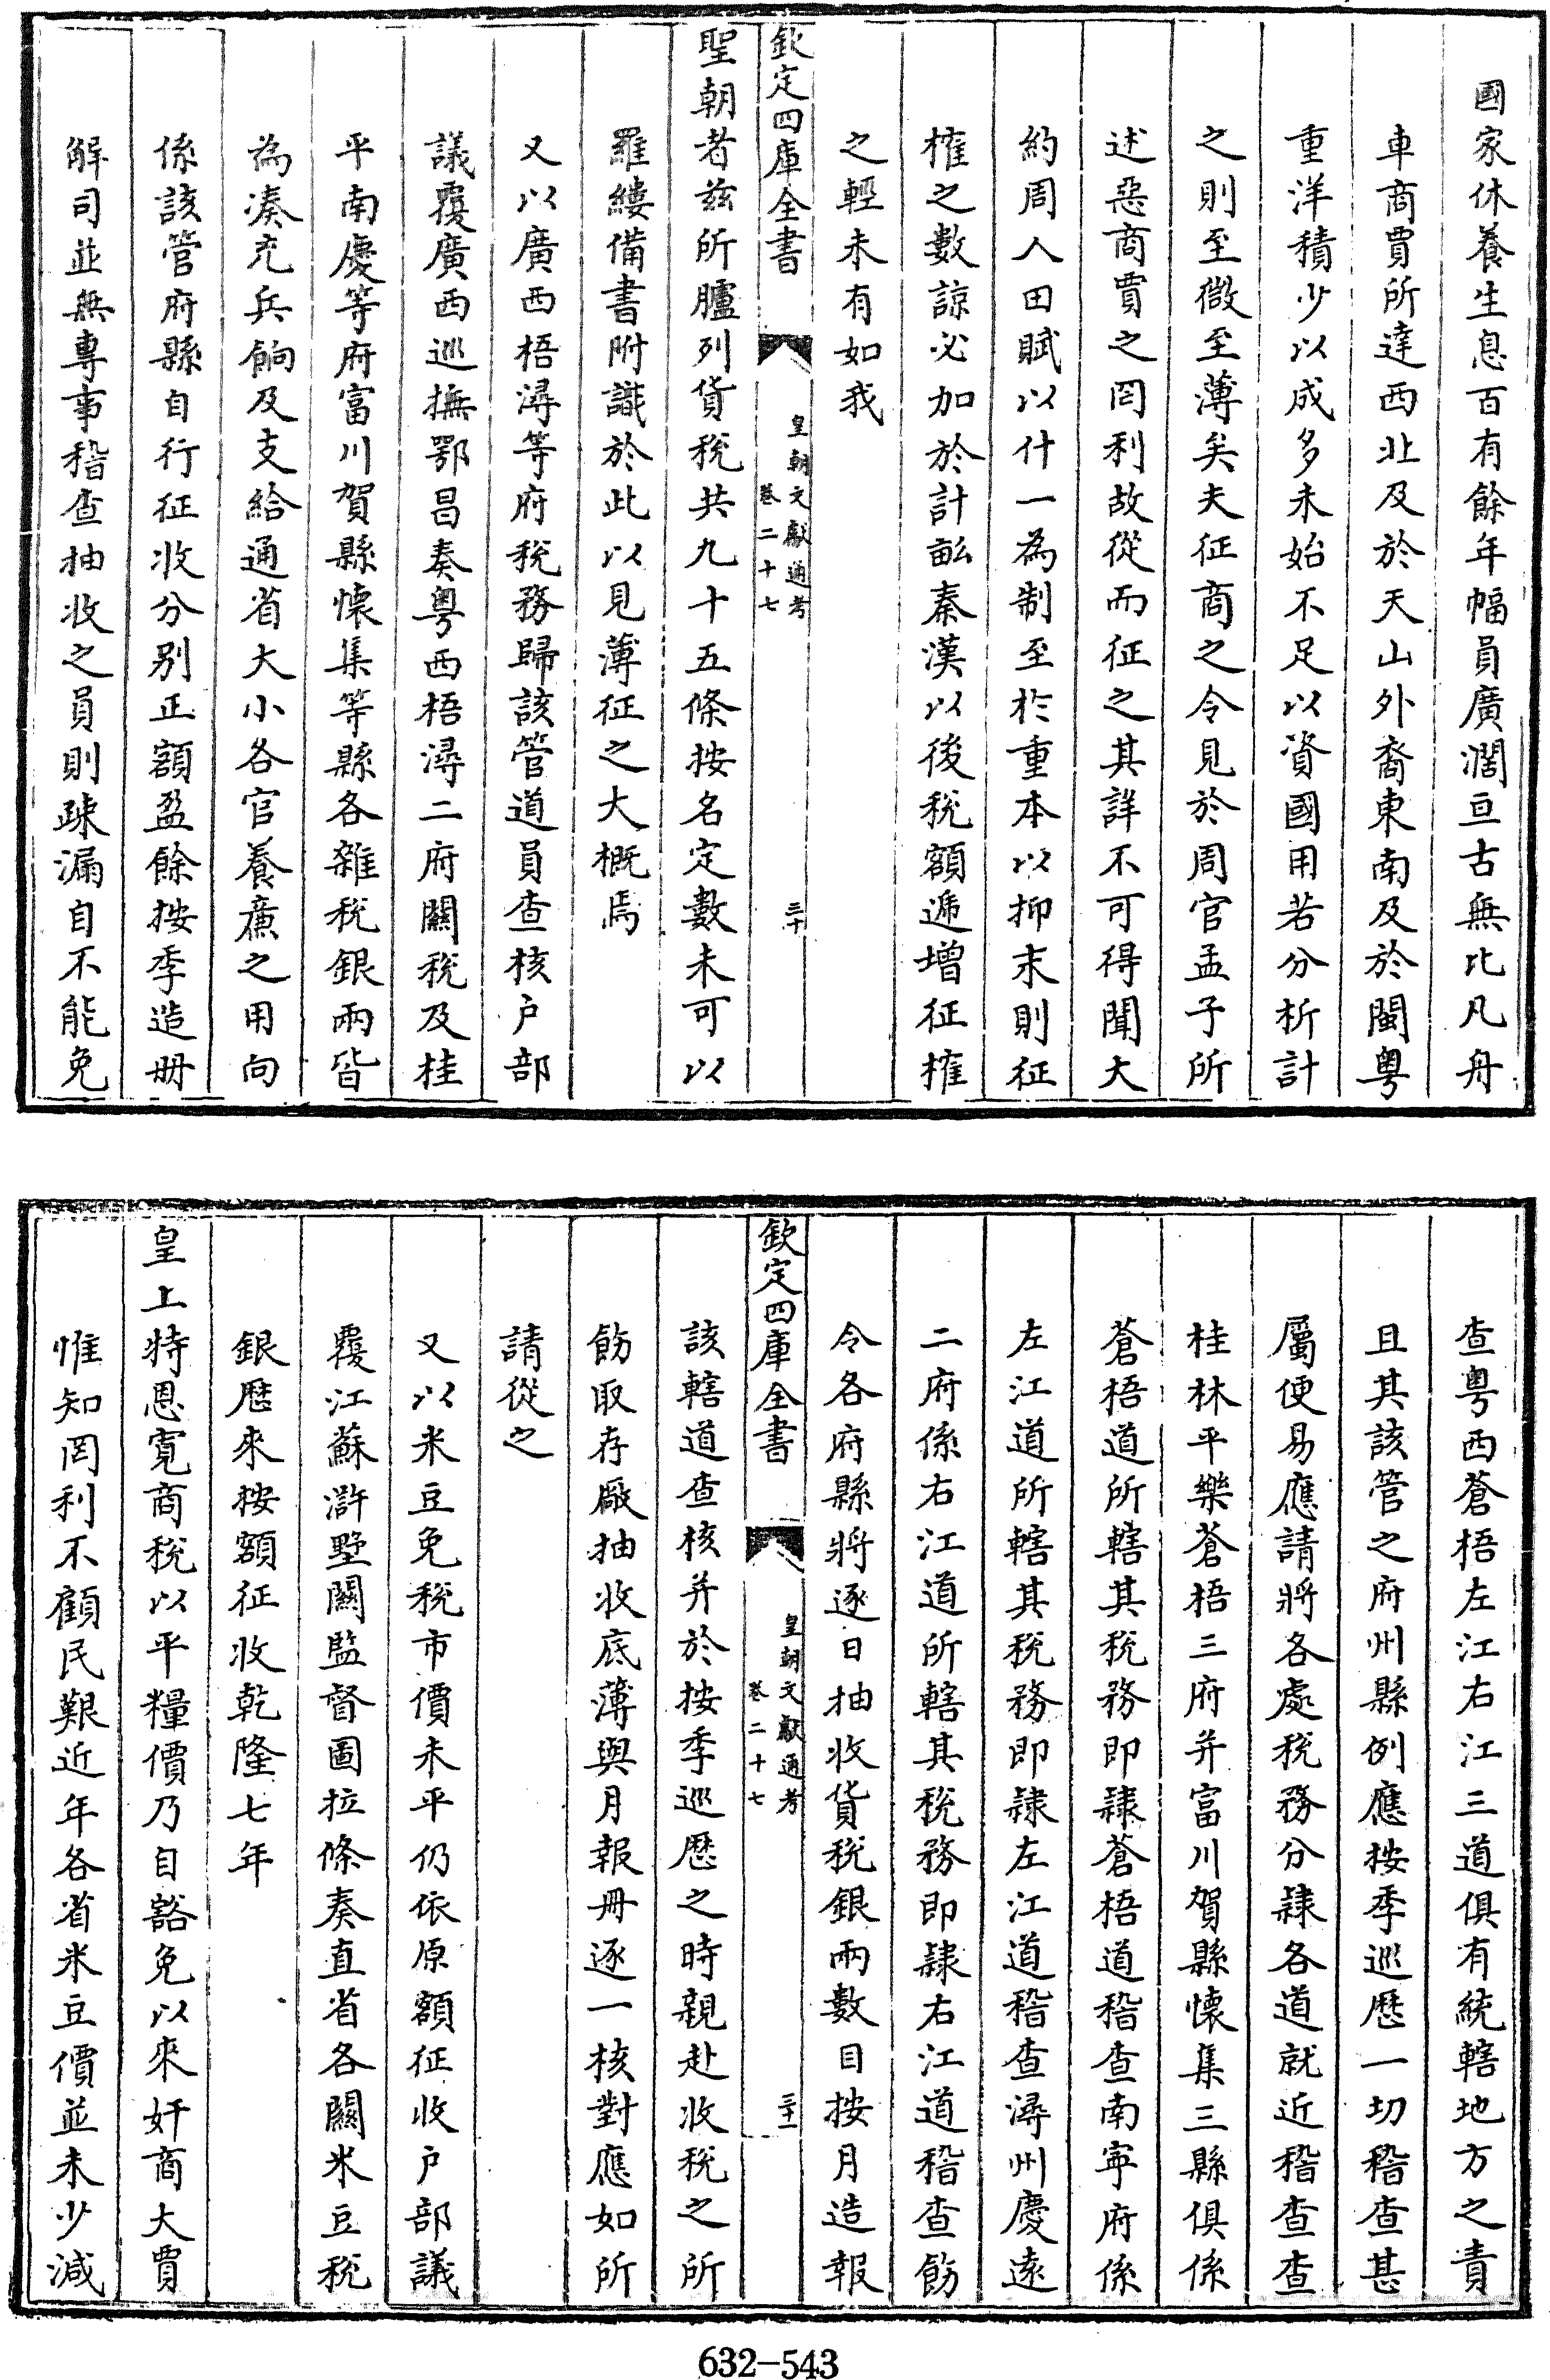 國家休養生息百有餘年幅員廣濶亘古無比凡舟
車商賈所達西北及於天山外裔東南及於閩粤
重洋積少以成多未始不足以資國用若分析計
之則至微至薄矣夫征商之令見於周官孟子所
述惡商賈之罔利故從而征之其詳不可得聞大
約周人田賦以什一為制至扵重本以抑末則征
榷之數諒必加於計畝秦漢以後税額遞增征榷
之輕未有如我
欽定四庫全書
皇朝文獻通考
卷二十七
三十
聖朝者兹所臚列貨税共九十五條按名定數未可以
羅縷備書附識於此以見薄征之大概焉
又以廣西梧潯等府税務歸該管道員查核户部
議覆廣西巡撫鄂昌奏粤西梧潯二府關税及桂
平南慶等府富川賀縣懐集等縣各雜税銀兩皆
為湊充兵餉及支給通省大小各官養亷之用向
係該管府縣自行征收分别正額盈餘按季造册
解司並無專事稽查抽收之員則疎漏自不能免
查粤西蒼梧左江右江三道俱有統轄地方之責
且其該管之府州縣例應按季巡歴一切稽查甚
屬便易應請將各處税務分隷各道就近稽查查
桂林平樂蒼梧三府并富川賀縣懐集三縣俱係
蒼梧道所轄其税務即隷蒼梧道稽查南寜府係
左江道所轄其税務即隷左江道稽查潯州慶遠
二府係右江道所轄其税務即隷右江道稽查飭
令各府縣將逐日抽收貨税銀兩數目按月造報
欽定四庫全書
皇朝文獻通考
卷二十七
三十一
該轄道查核并於按季巡歴之時親赴收税之所
飭取存厰抽收底薄與月報冊逐一核對應如所
請從之
又以米豆免税市價未平仍依原額征收户部議
覆江蘇滸墅關監督圖拉條奏直省各關米豆税
銀歴來按額征收乾隆七年
皇上特恩寛商税以平糧價乃自豁免以來奸商大賈
惟知罔利不顧民艱近年各省米豆價並未少減
632-543